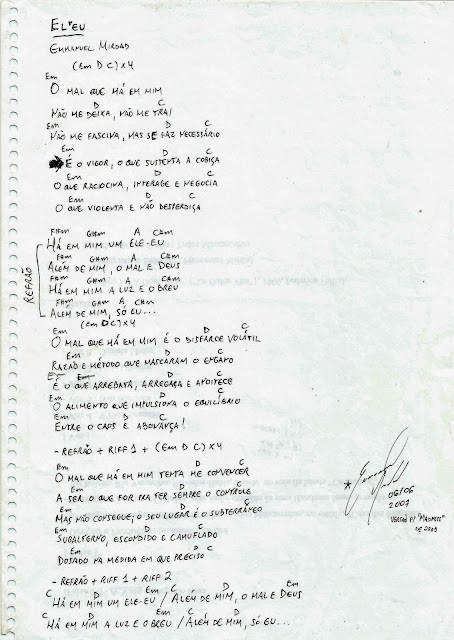 EL'EU
EMMANUEL MIRDAD
(Em D C) x4
Em
O MAL QUE HÁ EM MIM
D C
NÃO ME DEIXA, NÃO ME TRAI
Em D C
NÃO ME FASCINA, MAS SE FAZ NECESSÁRIO
Em D C
É O VIGOR, O QUE SUSTENTA A COBIÇA
Em D C
O QUE RACIOCINA, INTERAGE E NEGOCIA
Em D C
O QUE VIOLENTA E NÃO DESPERDIÇA
REFRÃO
F#m G#m A C#m
HÁ EM MIM UM ELE-EU
F#m G#m A C#m
ALÉM DE MIM, O MAL E DEUS
F#m G#m A C#m
HÁ EM MIM A LUZ E O BREU
F#m G#m A C#m
ALÉM DE MIM, SÓ EU...
(Em D C) x4
Em D C
O MAL QUE HÁ EM MIM É O DISFARCE VOLÁTIL
Em D C
RAZÃO E MÉTODO QUE MASCARAM O
Em D C
É O QUE ARREBATA, ARREGAÇA E APODRECE
Em D C
O ALIMENTO QUE IMPULSIONA O EQUILÍBRIO
Em D C
ENTRE O CAOS E ABONANÇA!
- REFRÃO + RIFF 1 + (Em D C) x4
Em D C
O MAL QUE HÁ EM MIM TENTA ME CONVENCER
Em D C
A SER O QUE FOR PRA TER SEMPRE O CONTROLE
Em D C
MAS NÃO CONSEGUE; O SEU LUGAR É O SUBTERRÂNEO
Em D C
SUBALTERNO, ESCONDIDO E CAMUFLADO
Em D C
DOSADO NA MEDIDA EM QUE PRECISO
- REFRÃO + RIFF 1 + RIFF 2
C D Em C D Em
HÁ EM MIM UM ELE-EU / ALÉM DE MIM, O MAL E DEUS
C D Em C D
HÁ EM MIM A LUZ E O BREU / ALÉM DE MIM, SÓ EU...
06/06
2007
VERSÃO P/
DE 2009